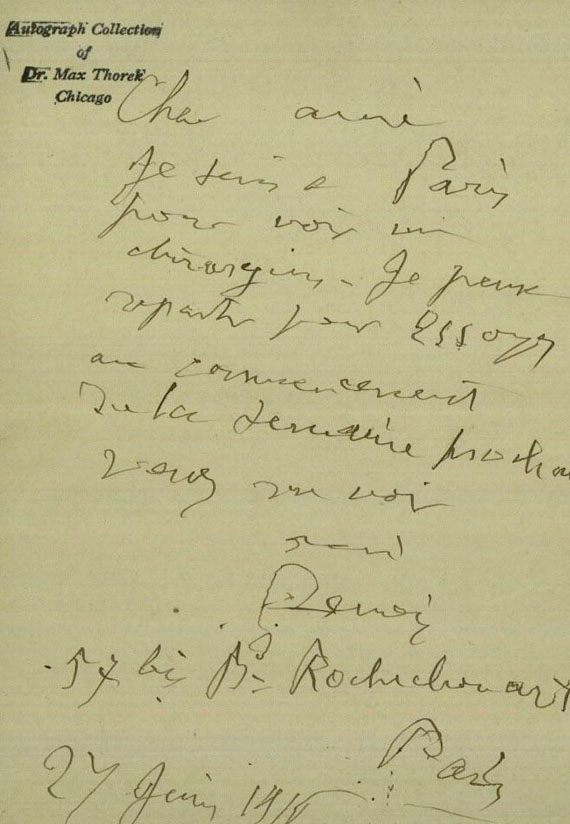 Autograph Collection
of
Dr. Max Thorek
Chicago
Cher ami
Je suis à Paris
pour voir un
chirurgien - Je peux
repartir pour Essoyes
au commencement
de la semaine prochai
venez me voir
ami
Renoir
57 bis Bd Rochechouart
Paris
27 Juin